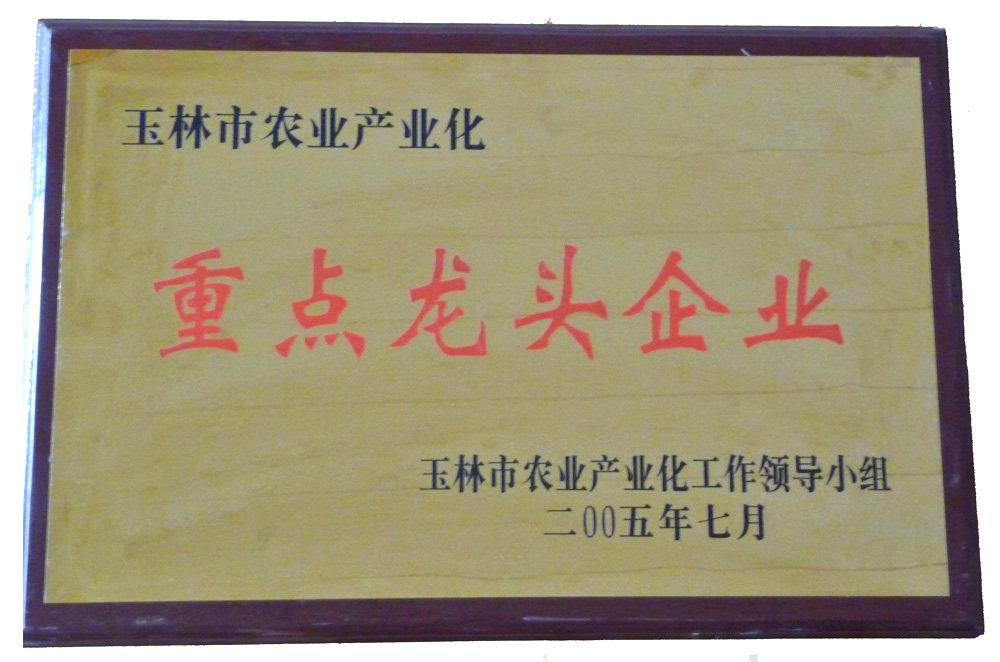 玉林市农业产业化
重点龙头企业
玉林市农业产业化工作领导小组
二00五年七月